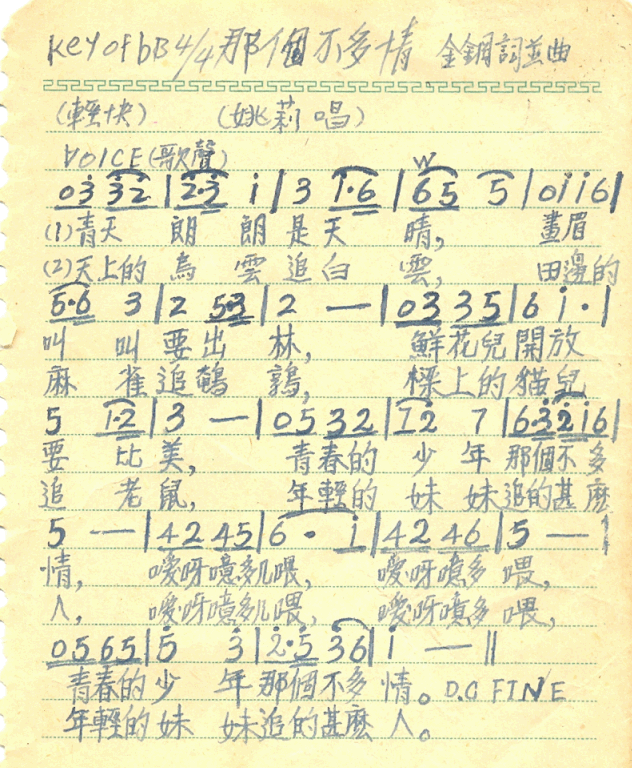 key of bB 4/4 那個不多情 金鋼詞並曲
(輕快) (姚莉唱)
VOICE(歌聲)
03 32 | 2·3 i | 3 i·6 | 65 5 | 0ii6 |
(1)青天 朗 朗 是天 晴, 畫眉
(2)天上的 烏 雲 追白 雲, 田邊的
5·6 3 | 2 5·3 | 2 — | 03 35 | 6 i · |
叫 叫 要出 林, 鮮花兒開放
麻 雀追鵪 鶉, 樑上的貓兒
5 i·2 | 3 — | 05 32 | i2 7 | 63 2i6 |
要 比美, 青春的 少 年 那個不多
追 老鼠, 年輕的 妹 妹追的甚麼
5 — | 42 45 | 6 · i | 42 46 | 5 — |
情, 噯呀噫多儿喂, 噯呀噫多 喂,
人, 噯呀噫多儿喂, 噯呀噫多 喂,
0565 | 5 3 | 2·5 36 | i — ||
青春的少 年那個不多 情。 D.C FINE
年輕的妹 妹追的甚麼 人。